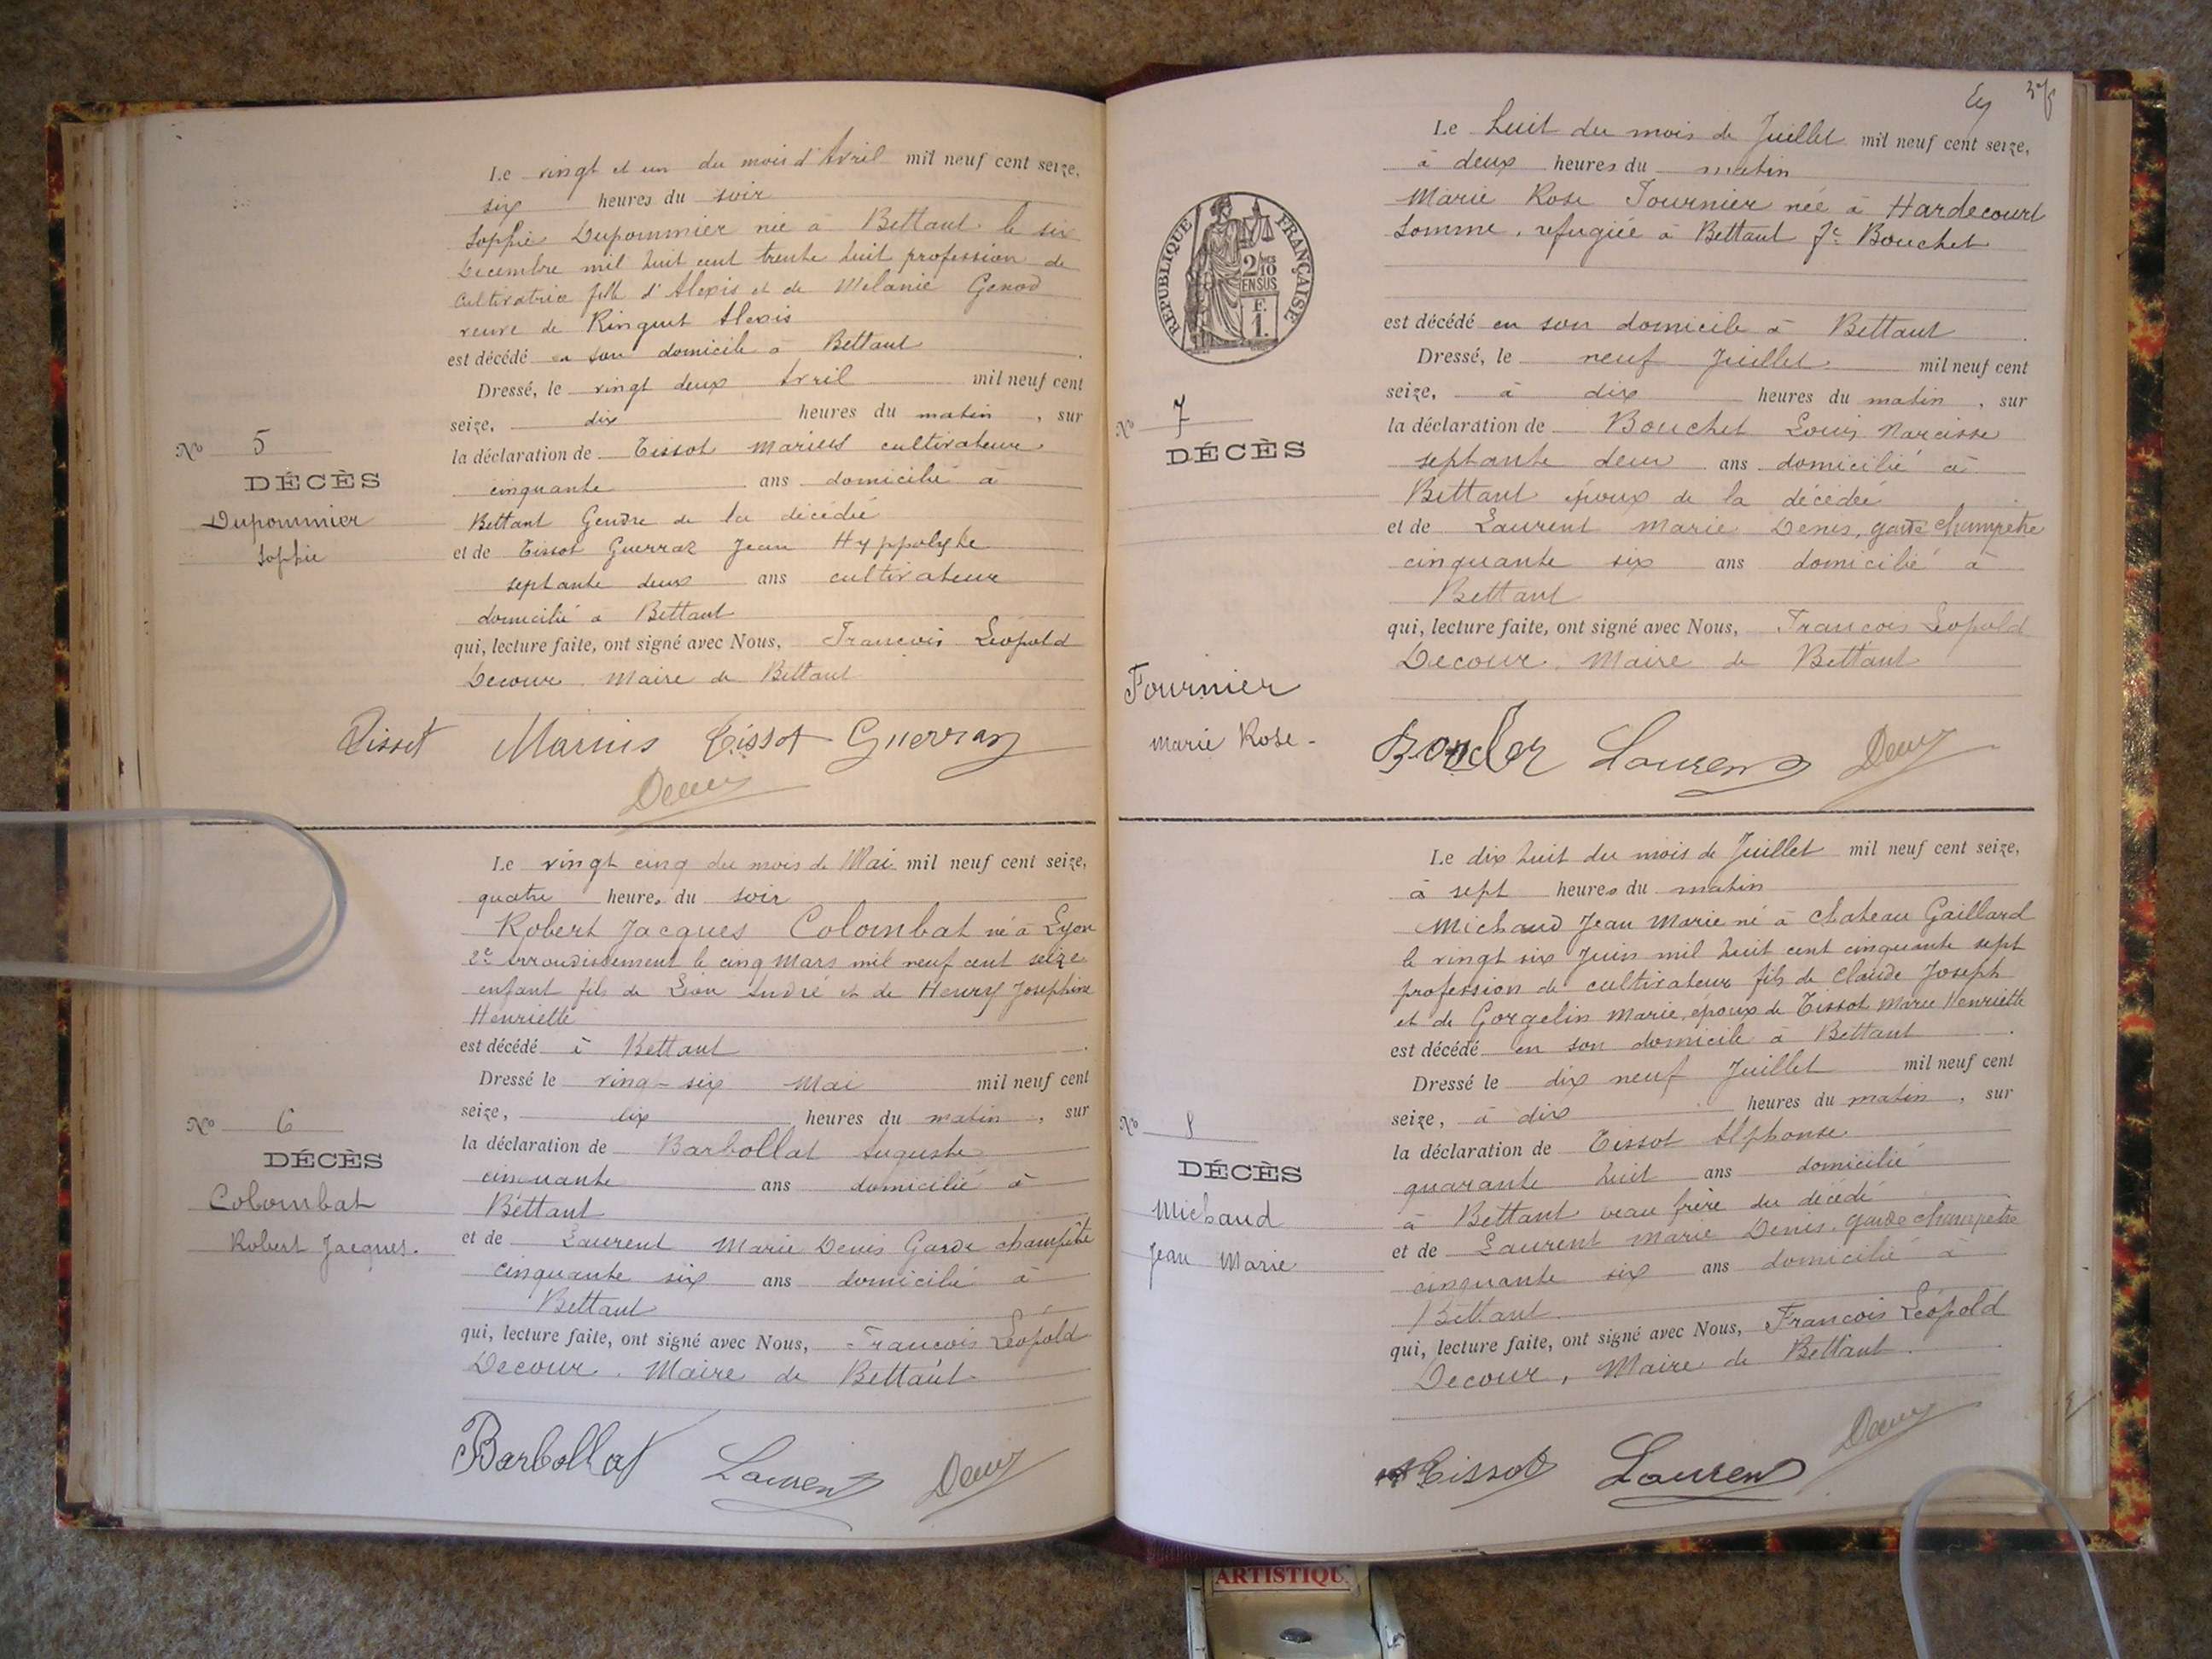 Le vingt et un du mois d'Avril mil neuf cent seize,
six heures du soir
Sophie Dupommier née à Bettant le six
Decembre mil huit cent trente huit profession de
Cultivatrice fille d'Alexis et de Mélanie Genod
veuve de Ringuet Alexis
est décédé en son domicile à Bettant
Dressé, le vingt deux Avril mil neuf cent
seize, dix heures du matin, sur
la déclaration de Tissot Marius cultivateur
cinquante ans domicilié à
Bettant Gendre de la décédée
et de Tissot Guerraz Jean Hyppolythe
septante deux ans cultivateur
domicilié à Bettant
qui, lecture faite, ont signé avec Nous, Francois Léopold
Decour. Maire de Bettant
No 5
DÉCÈS
Dupommier
Sophie
Tissot Marius Tissot Guerraz
Le vingt cinq du mois de Mai mil neuf cent seize,
quatre heures du soir
Robert Jacques Colombat né à Lyon
2e Arrondissement le cinq Mars mil neuf cent seize
enfant fils de Léon André et de Henry Joséphine
Henriette
est décédé à Bettant
Dressé le ving-six Mai mil neuf cent
seize, dix heures du matin, sur
la déclaration de Barbollat Auguste
cinquante ans domicilié à
Bettant
et de Laurent Marie Denis Garde champêtre
cinquante six ans domicilié à
Bettant
qui, lecture faite, ont signé avec Nous, Francois Léopold
Decour. Maire de Bettant
No 6
DÉCÈS
Colombat
Robert Jacques.
Barbollat Laurent
Le huit du mois de Juillet mil neuf cent seize,
à deux heures du matin
Marie Rose Fournier née à Hardecourt
Somme, refugiée à Bettant fe Bouchet
est décédé en son domicile à Bettant
Dressé, le neuf Juillet mil neuf cent
seize, à dix heures du matin, sur
la déclaration de Bouchet Louis Narcisse
septante deux ans domicilié à
Bettant époux de la décédée
et de Laurent Marie Denis, garde champetre
cinquante six ans domicilié à
Bettant
qui, lecture faite, ont signé avec Nous, Francois Léopold
Decour. Maire de Bettant
RÉPUBLIQUE FRANÇAISE
2/10
EN SUS
F.
1.
No 7
DÉCÈS
Fournier
Marie Rose -
Laurent
Le dix huit du mois de Juillet mil neuf cent seize,
à sept heures du matin
Michaud Jean Marie né à Chateau Gaillard
le vingt six Juin mil huit cent cinquante sept
profession de cultivateur fils de Claude Joseph
et de Gorgelin Marie, époux de Tissot Marie Henriette
est décédé en son domicile à Bettant
Dressé le dix neuf Juillet mil neuf cent
seize, à dix heures du matin, sur
la déclaration de Tissot Alphonse
quarante huit ans domicilié
à Bettant beau frère du décédé
et de Laurent Marie Denis, garde champetre
cinquante six ans domicilié à
Bettant.
qui, lecture faite, ont signé avec Nous, Francois Léopold
Decour, Maire de Bettant.
No 8
DÉCÈS
Michaud
Jean Marie
Tissot Laurent
ARTISTIQU